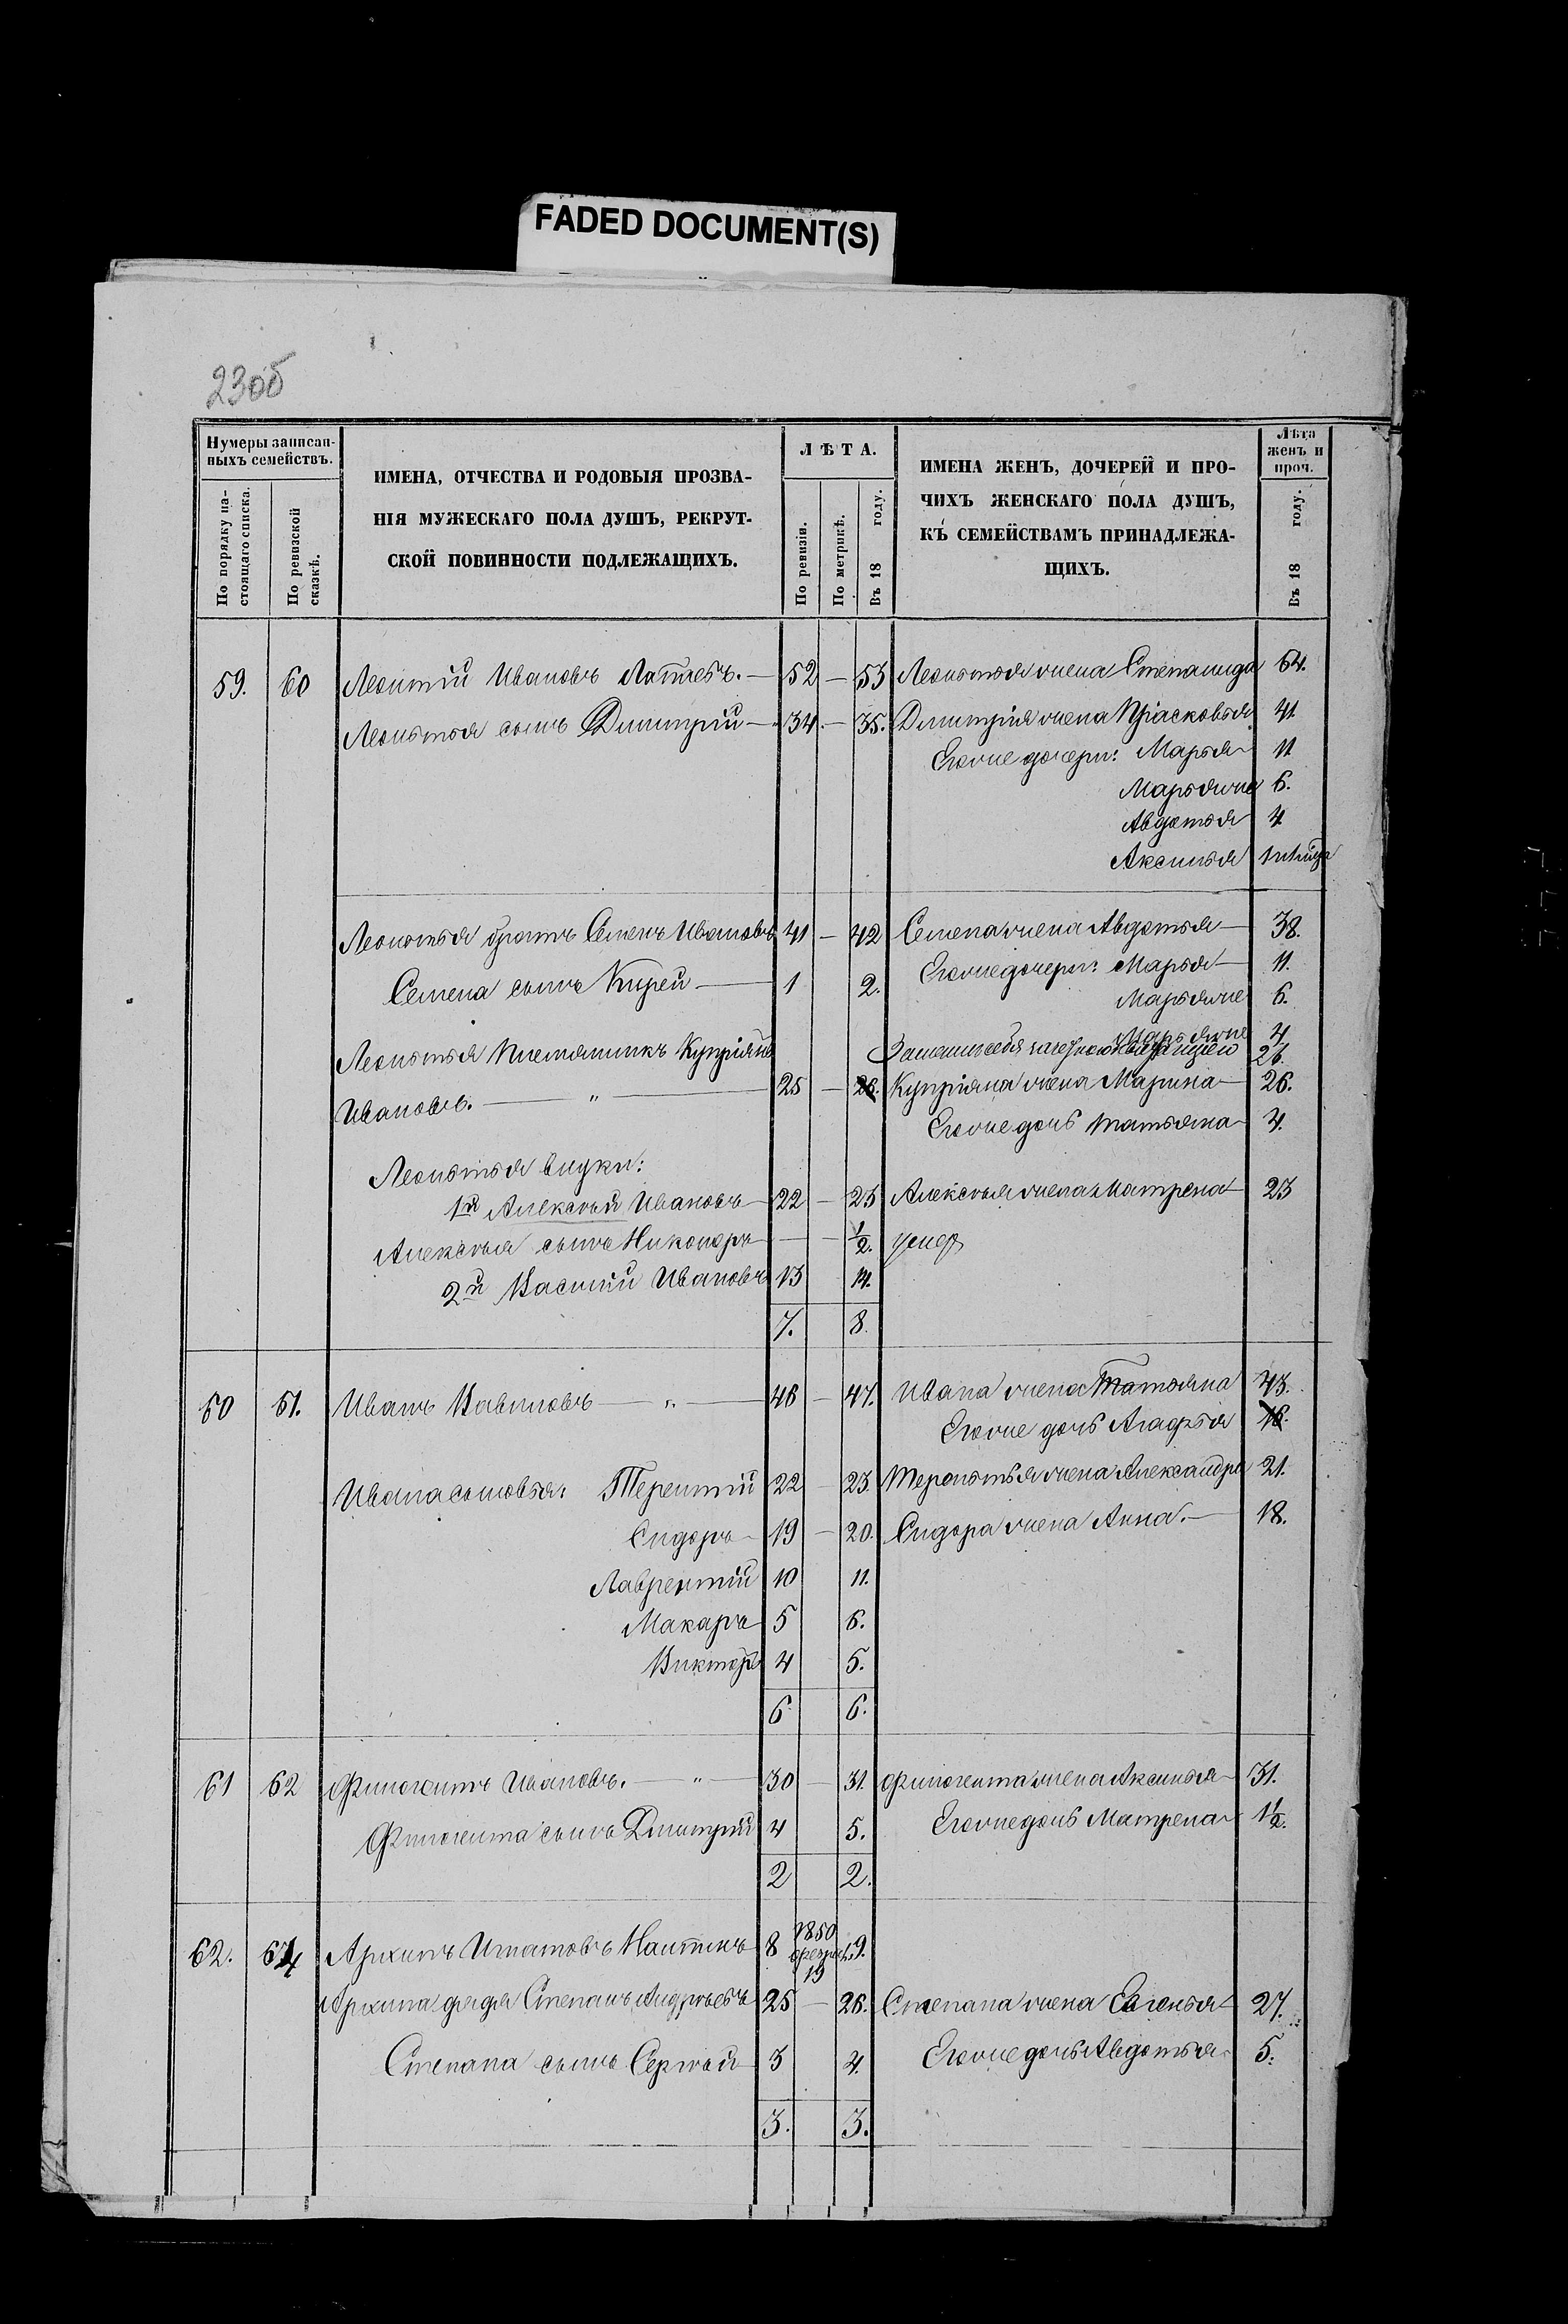 FADED DOCUMENT(S)
23об
Нумеры записан-
ныхъ семействъ.
По порядку на-
стоящаго списка.
По ревизской
сказкѣ.
ИМЕНА, ОТЧЕСТВА И РОДОВЫЯ ПРОЗВА-
НІЯ МУЖЕСКАГО ПОЛА ДУШЪ, РЕКРУТ-
СКОЙ ПОВИННОСТИ ПОДЛЕЖАЩИХЪ.
ЛѢТА.
По ревизіи.
По метрикѣ.
Въ 18 году.
ИМЕНА ЖЕНЪ, ДОЧЕРЕЙ И ПРО-
ЧИХЪ ЖЕНСКАГО ПОЛА ДУШЪ,
КЪ СЕМЕЙСТВАМЪ ПРИНАДЛЕЖА-
ЩИХЪ.
Лѣта
женъ и
проч.
Въ 18 году.
59. 60 Леонтій Ивановъ Лаптевъ. — 52 — 53 Леонтья жена Степанида 54.
Леонтья сынъ Дмитрій — 34. — 35. Дмитрія жена Прасковья 41.
Его же дочери: Марья 11
Марья же 6.
Авдотья 4.
Аксинья
Леонтья братъ Семенъ Ивановъ 41 — 42 Семена жена Авдотья — 38.
Семена сынъ Кирей — 1 2. Его же дочери: Марья 11.
Марья же 6.
Марья же 4
Леонтья племянникъ Купріянъ 26.
Ивановъ. — " — 25 — 26. Купріяна жена Марина — 26.
Его же дочь Татьяна 4.
Леонтья внуки:
1й Алексѣй Ивановъ 22 — 23 Алексѣя жена Матрена 23
Алексѣя сынъ Никоноръ — — 1/2. умер
2й Василій Ивановъ 13 14.
7. 8.
60 61. Иванъ Вавиловъ — " — 46 — 47. Ивана жена Татьяна 43.
Его же дочь Агафья 16.
Ивана сыновья: Терентій 22 — 23. Терентья жена Александра 21.
Сидоръ 19 — 20. Сидора жена Анна. — 18.
Лаврентій 10 11.
Макаръ 5 6.
Викторъ 4 5.
6. 6.
61 62 Финогентъ Ивановъ. — " — 30 — 31. Финогента жена Аксинья 31.
Финогента сынъ Дмитрій 4 5. Его же дочь Матрена 1 1/2.
2 2.
62. 64 Архипъ Игнатовъ 8 1850 февраля 19 9.
Архипа дядя Степанъ Андрѣевъ 25 — 26. Степана жена Евгенья 27.
Степана сынъ Сергѣй 3 4. Его же дочь Авдотья 5.
3. 3.